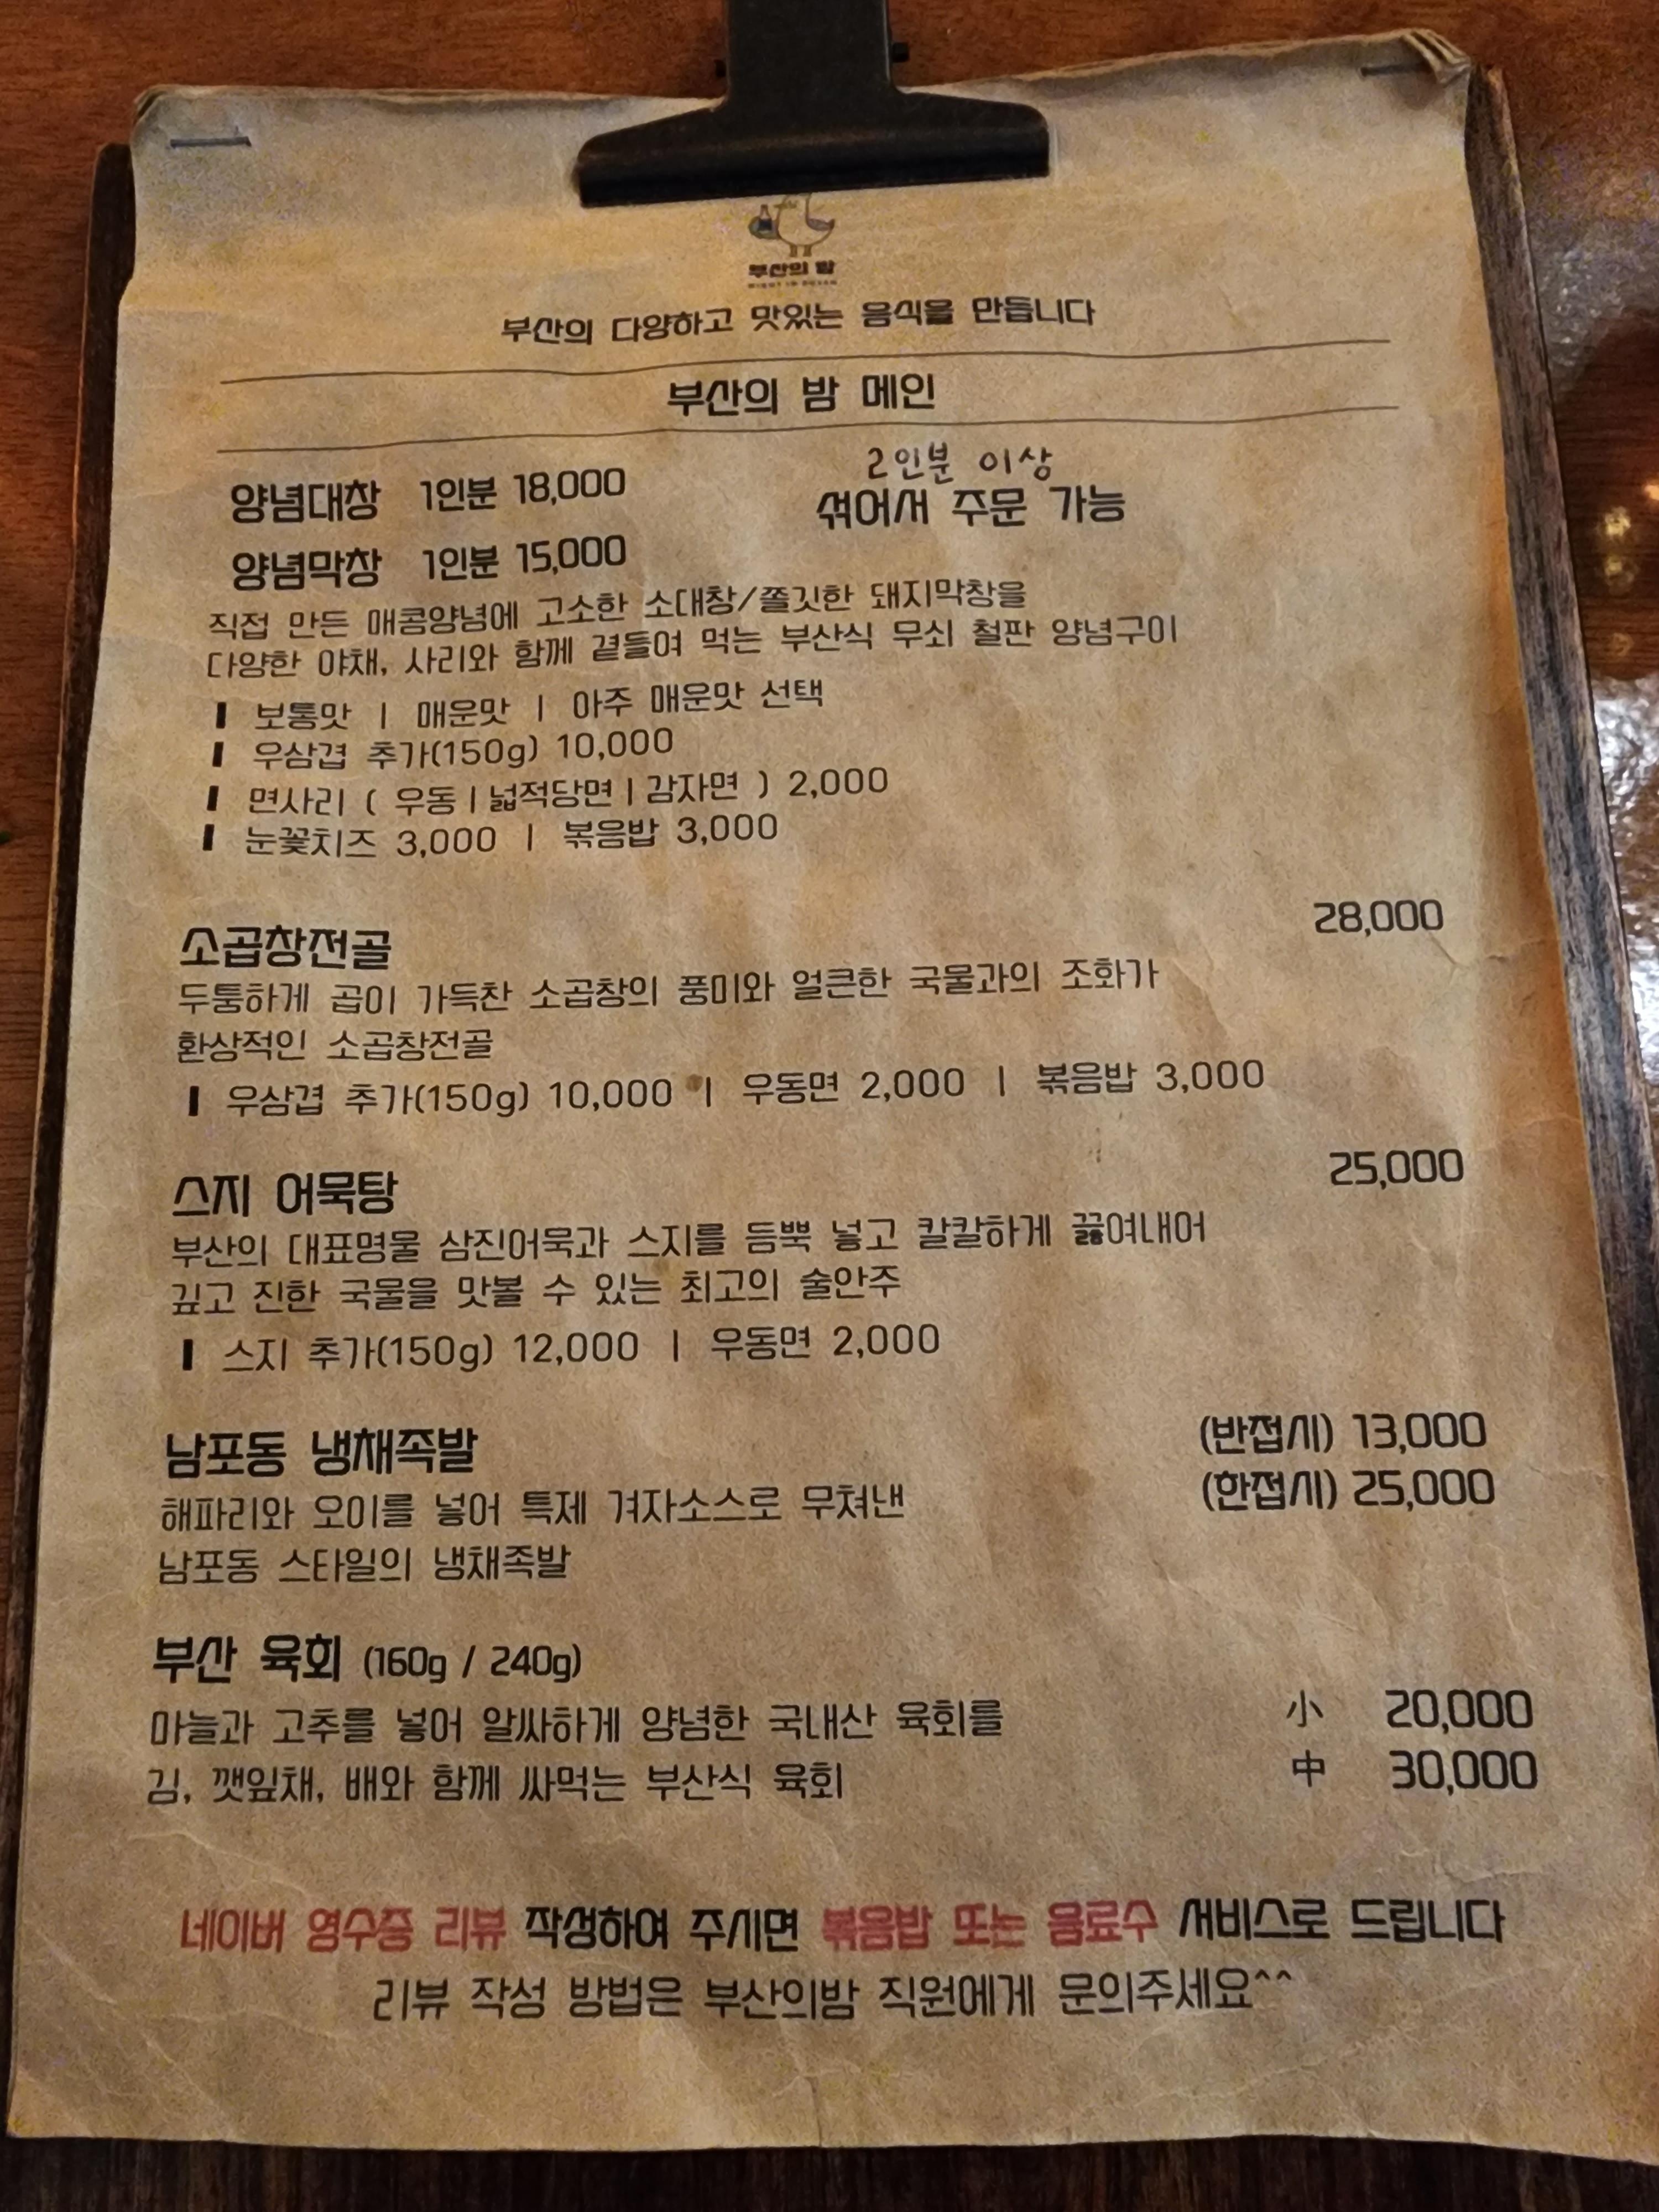 부산의 밤
부산의 다양하고 맛있는 음식을 만듭니다
부산의 밤 메인
2인분 이상
양념대창 1인분 18,000 섞어서 주문 가능
양념막창 1인분 15,000
직접 만든 매콤양념에 고소한 소대창/쫄깃한 돼지막창을
다양한 야채, 사리와 함께 곁들여 먹는 부산식 무쇠 철판 양념구이
┃ 보통맛 | 매운맛 | 아주 매운맛 선택
┃ 우삼겹 추가(150g) 10,000
┃ 면사리 ( 우동 | 넓적당면 | 감자면 ) 2,000
┃ 눈꽃치즈 3,000 | 볶음밥 3,000
소곱창전골 28,000
두툼하게 곱이 가득찬 소곱창의 풍미와 얼큰한 국물과의 조화가
환상적인 소곱창전골
┃ 우삼겹 추가(150g) 10,000 | 우동면 2,000 | 볶음밥 3,000
스지 어묵탕 25,000
부산의 대표명물 삼진어묵과 스지를 듬뿍 넣고 칼칼하게 끓여내어
깊고 진한 국물을 맛볼 수 있는 최고의 술안주
┃ 스지 추가(150g) 12,000 | 우동면 2,000
남포동 냉채족발 (반접시) 13,000
(한접시) 25,000
해파리와 오이를 넣어 특제 겨자소스로 무쳐낸
남포동 스타일의 냉채족발
부산 육회 (160g / 240g)
마늘과 고추를 넣어 알싸하게 양념한 국내산 육회를 小 20,000
김, 깻잎채, 배와 함께 싸먹는 부산식 육회 中 30,000
네이버 영수증 리뷰 작성하여 주시면 볶음밥 또는 음료수 서비스로 드립니다
리뷰 작성 방법은 부산의밤 직원에게 문의주세요^^